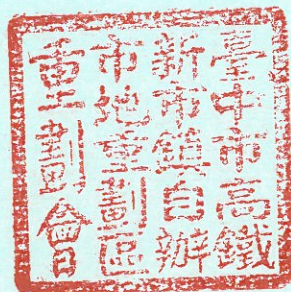 臺中市高鐵
新市鎮自辦
市地重劃區
重劃會